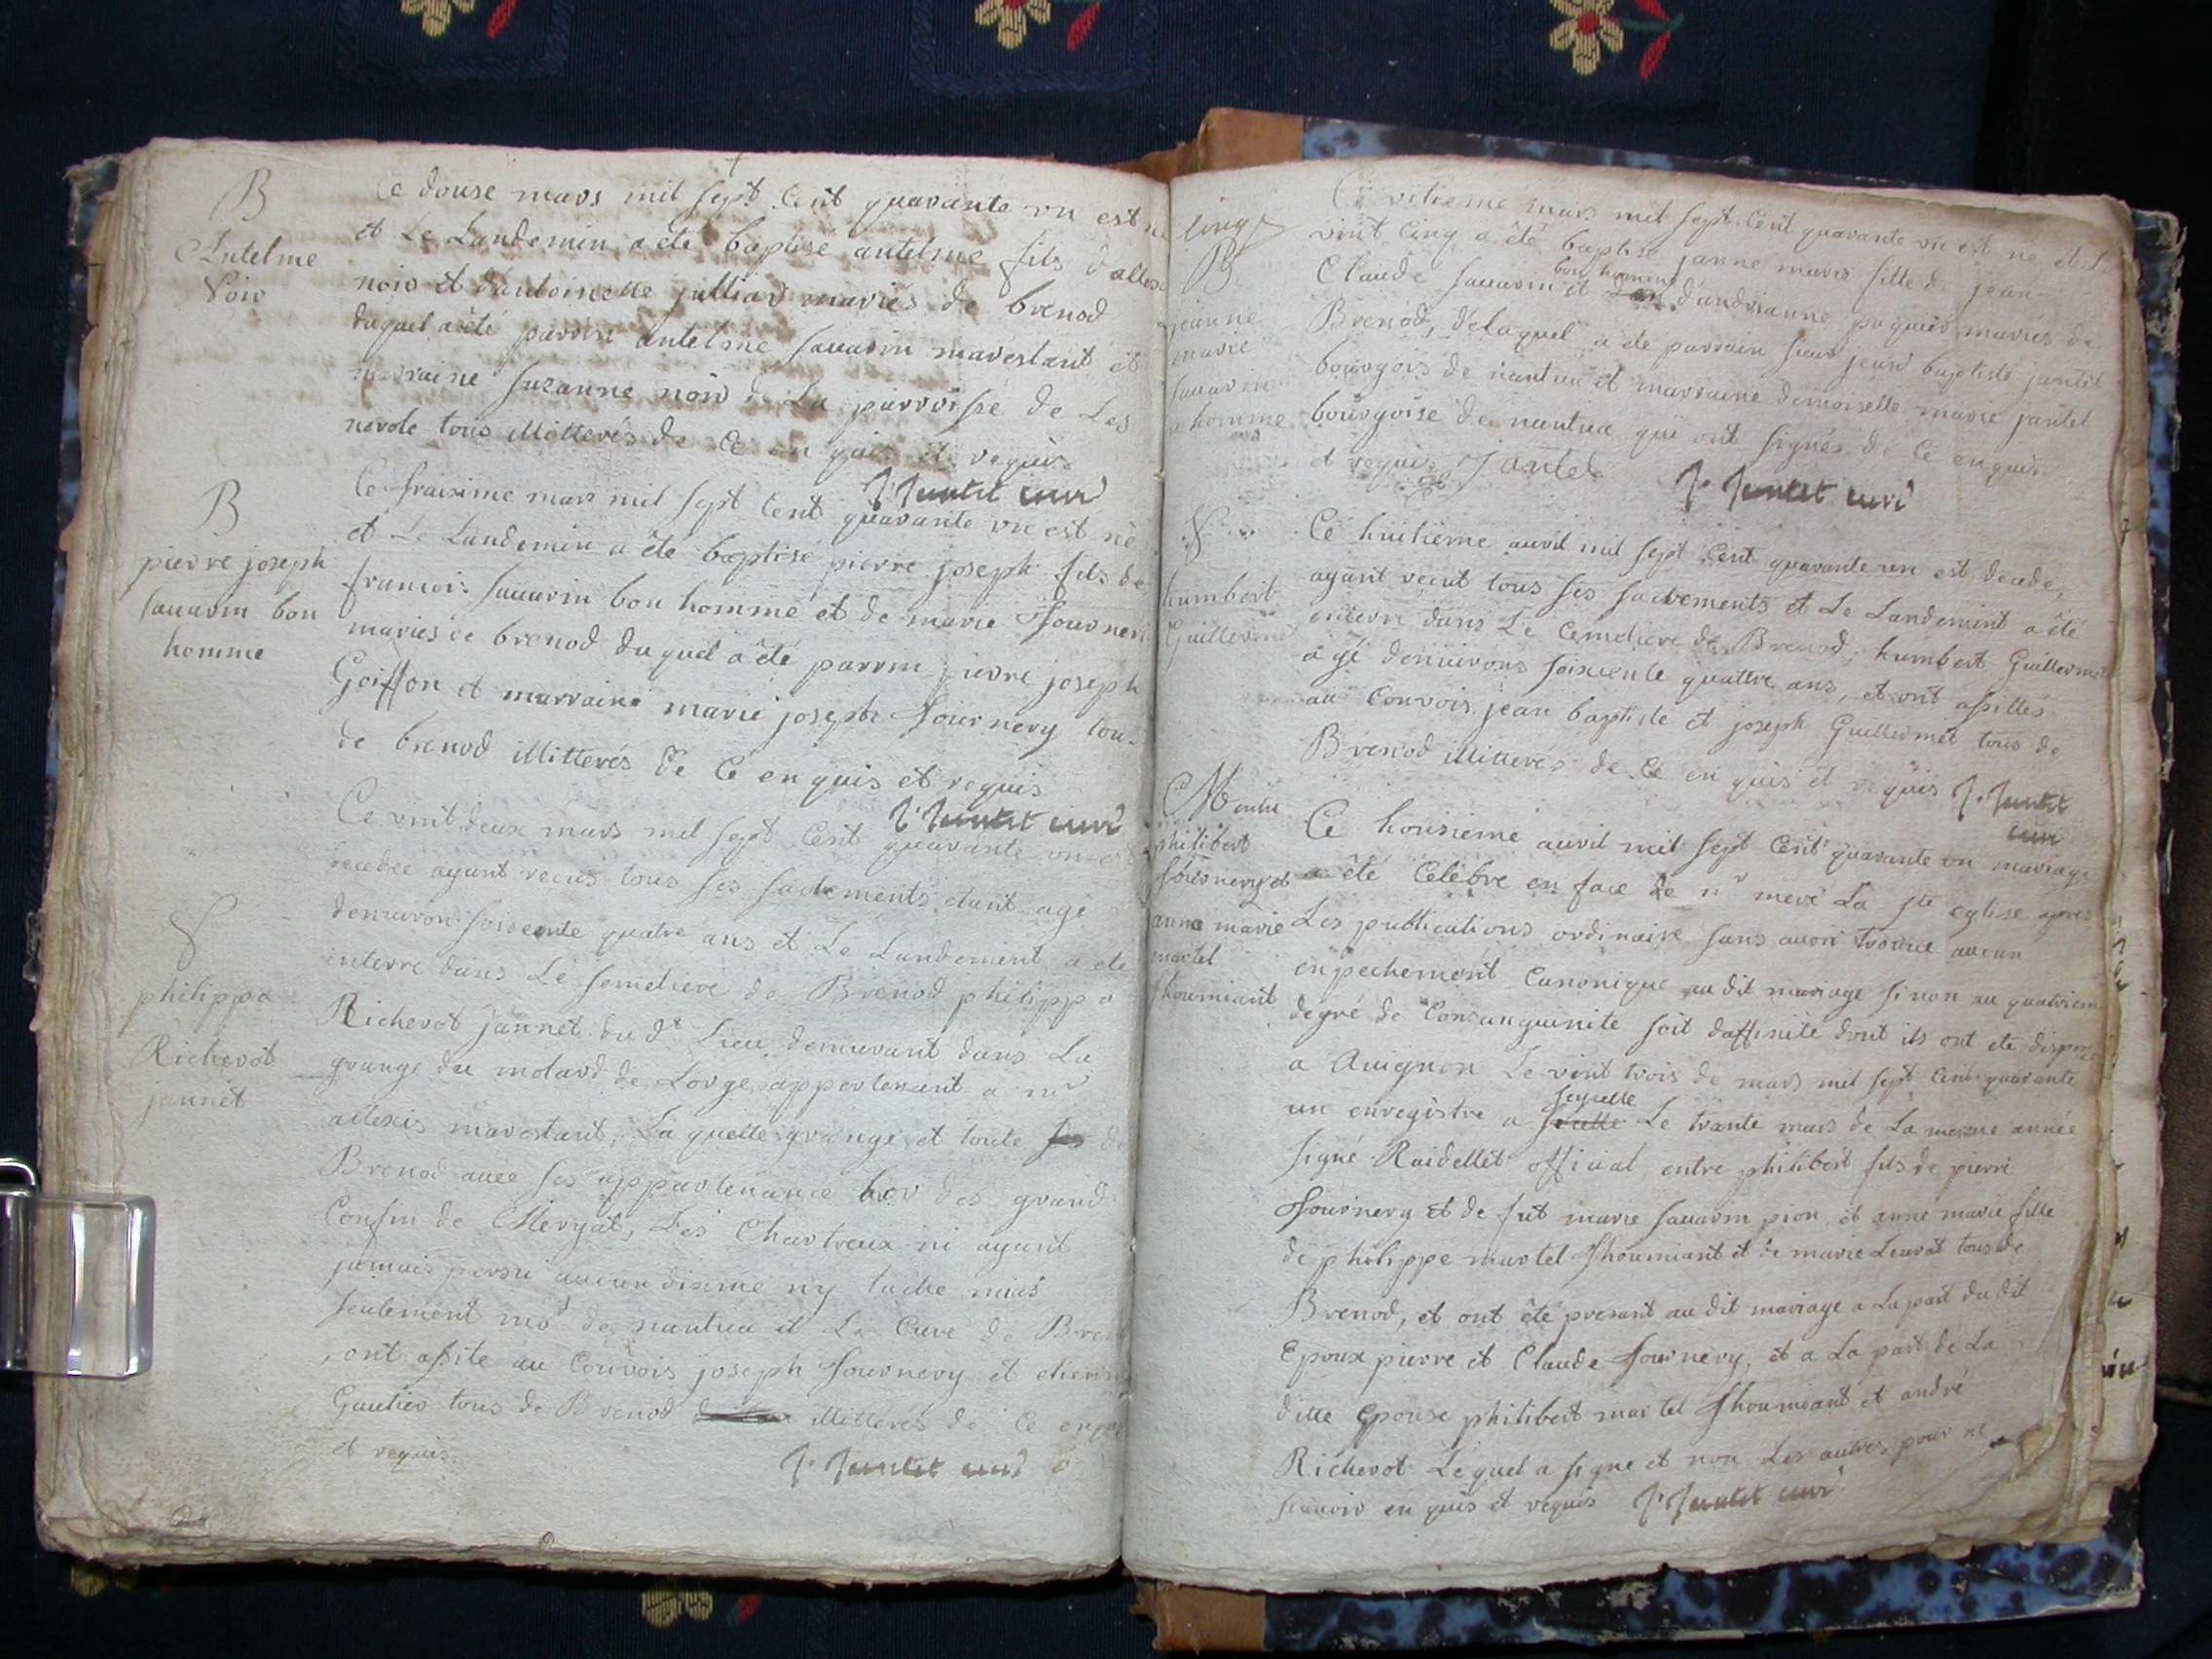 B
Antelme
Noir
Ce douse mars mil sept Cent quarante vn est né
et Le Landemin a été baptisé antelme fils d'allexi
noir et d'antoinette julliard mariés de brenod
duquel a été parrin antelme sauarin marestant et
marraine suzanne noir de La parroisse de Les
nerole tous illitterés de Ce en quis et requis
J. Jantet curé
B
pierre joseph
sauarin bon
homme
Ce mars mil sept Cent quarante vn est né
et Le Landemin a été baptisé pierre joseph fils de
francois sauarin bon homme et de marie fournery
mariés de brenod duquel a été parrin pierre joseph
Goiffon et marraine marie joseph fournery tous
de brenod illitterés de Ce enquis et requis
J. Jantet curé
S
philippa
Richerot
jannet
Ce vint deux mars mil sept Cent quarante vn est
decedee ayant recus tous ses sacrements etant agé
denuiron soisente quatre ans et Le Landemint a été
interré dans Le semetiere de Brenod philippa
Richerot jannet du dt Lieu demeurant dans La
grange du molard de Lorge appertenant a mr
allexis marestant, La quelle grange et toute de
Brenod auec ses appartenance hor des grand
Confin de Meryat, Les Chartreux ni ayant
jamais persu aucun disme ny tache mais
seulement mrs de nantua et Le Curé de Brenod
, ont assité au Convois joseph fournery et etienne
Gautier tous de Brenod illitterés de Ce enquis
et requis.
J. Jantet curé
B
jeanne
marie
sauarin
homme
mars mil sept Cent quarante vn est né et Le
vint Cinq a été baptisé janne marie fille de jean
Claude sauarin bon homme et d'andrianne paquier mariés de
Brenod, delaquel a été parrain sieur jean baptiste jantet
bourgois de nantua et marraine demoiselle marie jantet
bourgoise de nantua qui ont signés de Ce enquis
et requis Jantet
J. Jantet curé
S
humbert
Guillermet
Ce huitieme auril mil sept Cent quarante un est decede,
ayant recut tous ses sacrements et Le Landemint a été
enterre dans Le Cemetiere de Brenod humbert Guillermet
agé denuirons soixente quattre ans, et ont assittés
au Convois jean baptiste et joseph Guillermet tous de
Brenod illitterés de Ce en quis et requis J. Jantet
curé
philibert
fournery et
anne marie
martel
thoumiant
Ce honsieme auril mil sept Cent quarante vn mariage
a été Celebre en face de nr mere La ste eglise apres
Les publications ordinaire sans auoir trouue aucun
enpechement Canonique au dit mariage sinon au quatriem
degré de Consanguinite soit daffinité dont ils ont ete dispensé
a Auignon Le vint trois de mars mil sept Cent quarante
un enregistre a seyselle Le trante mars de La mesme année
signé Raidellet official, entre philibert fils de pierre
fournery et de fut marie sauarin pion, et anne marie fille
de philippe martel thoumiant et de marie Leurat tous de
Brenod, et ont été presant au dit mariage a La part du dit
Epoux pierre et Claude fournery, et a La part de La
ditte Epouse philibert martel thoumiant et andré
Richerot Lequel a signe et non Les autres pour ne
scauoir en quis et requis J. Jantet curé